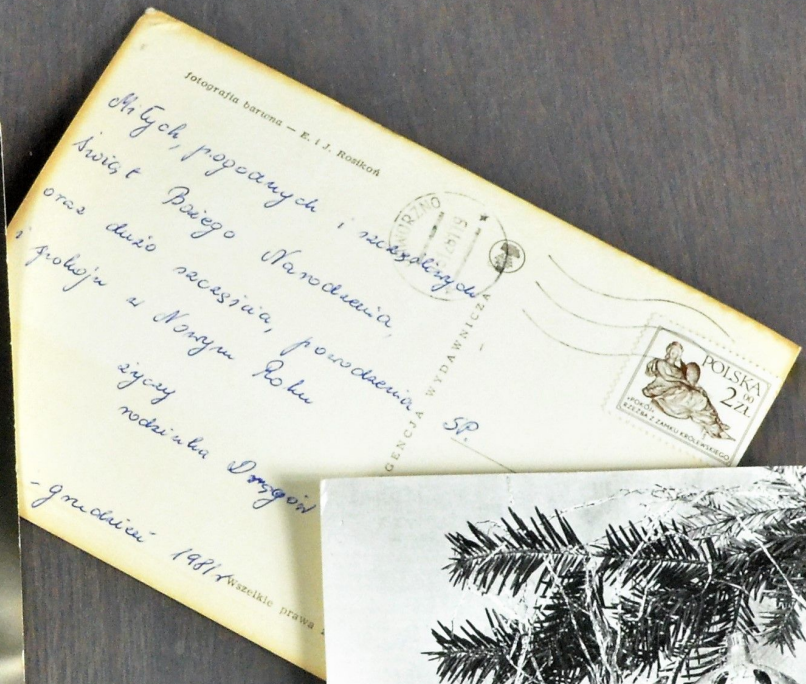 fotografia barwna — E. i J. Rosikoń
Miłych, pogodnych i szczęśliwych
Świąt Bożego Narodzenia,
oraz dużo szczęścia, powodzenia
i spokoju w Nowym Roku
życzy
rodzinka Drągów
- grudzień 1981 r
Wszelkie prawa
GENCJA WYDAWNICZA
SP.
POLSKA
2 00 ZŁ
«POKÓJ»
RZEŹBA Z ZAMKU KRÓLEWSKIEGO